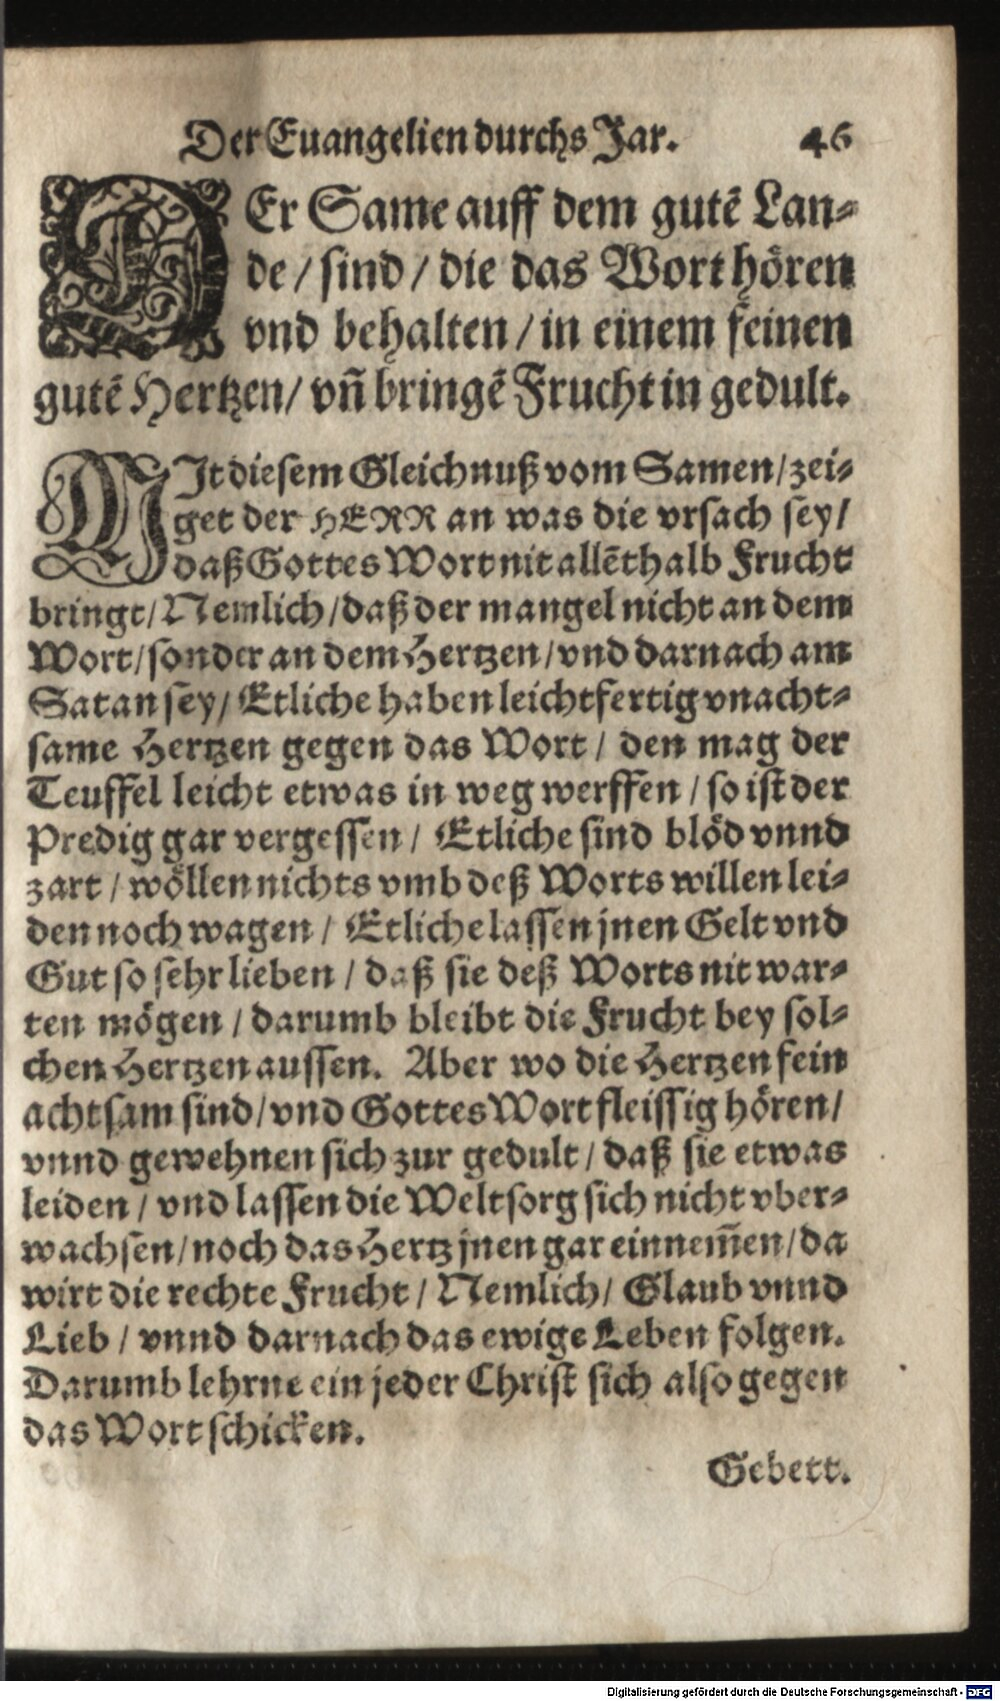 Der Euangelien durchs Jar. 46
DEr Same auff dem gutẽ Lan-
de / sind / die das Wort hören
vnd behalten / in einem feinen
gutẽ Hertzen / vñ bringẽ Frucht in gedult.
MIt diesem Gleichnuß vom Samen / zei-
get der HERR an was die vrsach sey /
daß Gottes Wort nit allẽthalb Frucht
bringt / Nemlich / daß der mangel nicht an dem
Wort / sonder an dem Hertzen / vnd darnach am
Satan sey / Etliche haben leichtfertig vnacht-
same Hertzen gegen das Wort / den mag der
Teuffel leicht etwas in weg werffen / so ist der
Predig gar vergessen / Etliche sind blöd vnnd
zart / wöllen nichts vmb deß Worts willen lei-
den noch wagen / Etliche lassen jnen Gelt vnd
Gut so sehr lieben / daß sie deß Worts nit war-
ten mögen / darumb bleibt die Frucht bey sol-
chen Hertzen aussen. Aber wo die Hertzen fein
achtsam sind / vnd Gottes Wort fleissig hören /
vnnd gewehnen sich zur gedult / daß sie etwas
leiden / vnd lassen die Weltsorg sich nicht vber-
wachsen / noch das Hertz jnen gar einnem̃en / da
wirt die rechte Frucht / Nemlich / Glaub vnnd
Lieb / vnnd darnach das ewige Leben folgen.
Darumb lehrne ein jeder Christ sich also gegen
das Wort schicken.
Gebett.
Digitalisierung gefördert durch die Deutsche Forschungsgemeinschaft - DFG